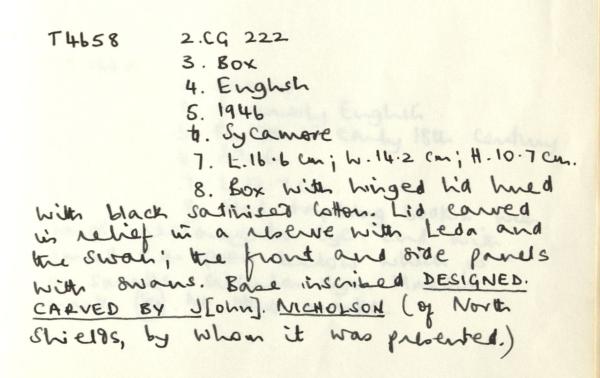 T4658 2. CG 222
3. Box
4. English
5. 1946
6. Sycamore
7. L.16.6 cm; W.14.2 cm; H.10.7 cm.
8. Box with hinged lid lined
with black satinised cotton. Lid carved
in relief in a reserve with Leda and
the swan; the front and side panels
with swans. Base inscribed DESIGNED.
CARVED BY J[ohn]. NICHOLSON (of North
Shields, by whom it was presented.)